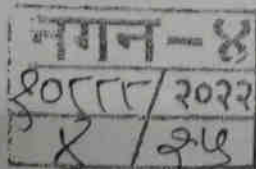 नगन-४
१०८८८/२०२२
४/२५